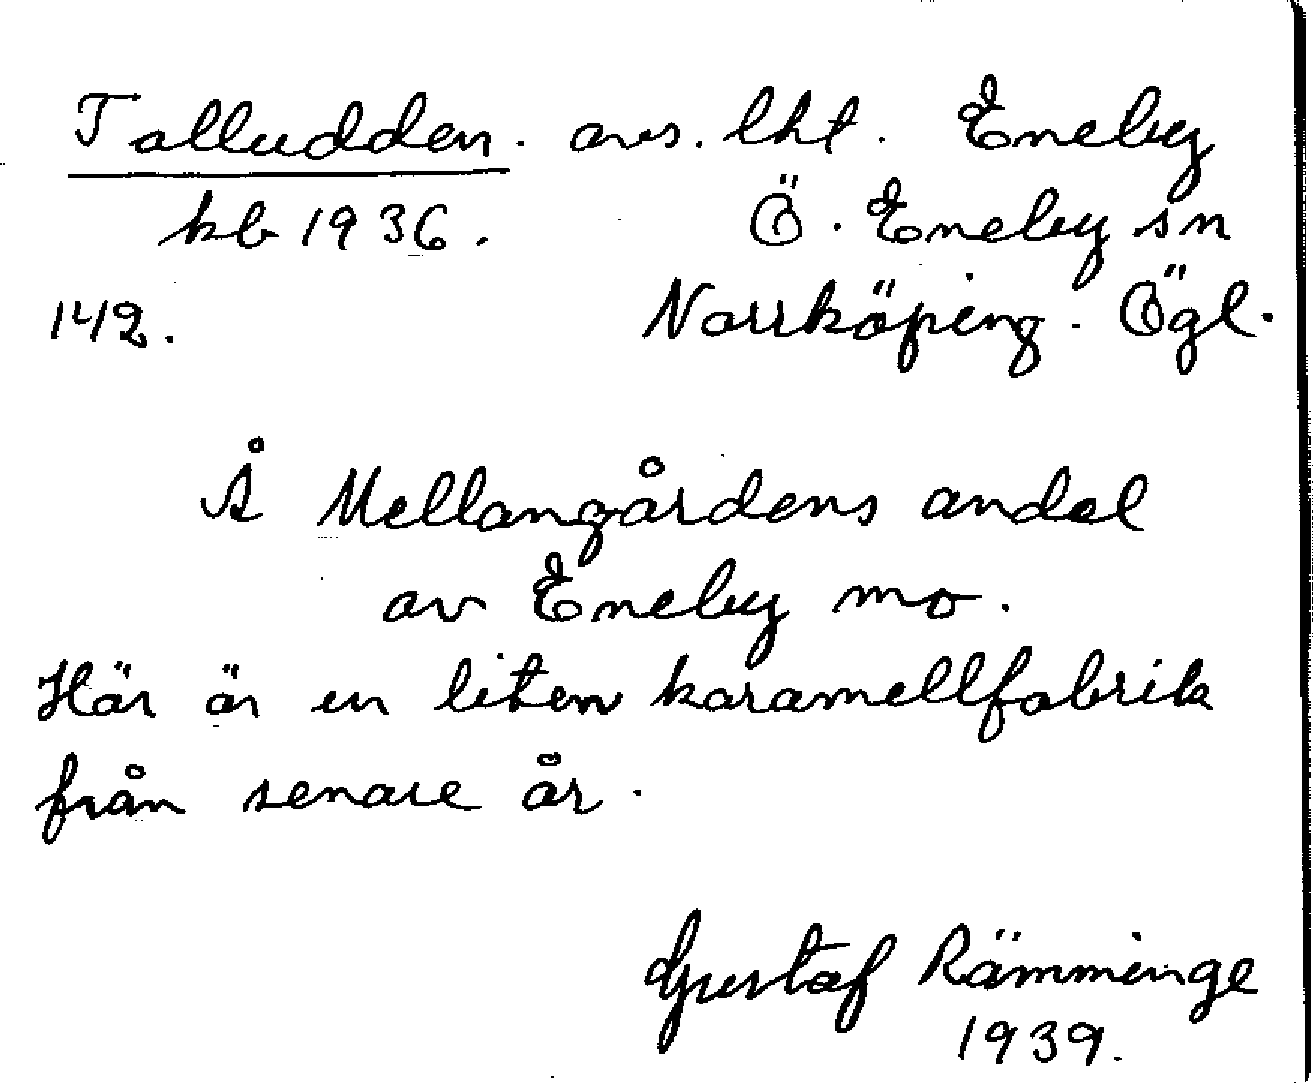 Talludden. avs. lht. Eneby
kb 1936. Ö. Eneby sn
142. Norrköping. Ögl.
Å Mellangårdens andel
av Eneby mo.
Här är en liten karamellfabrik
från senare år.
Gustaf Rämminge
1939.